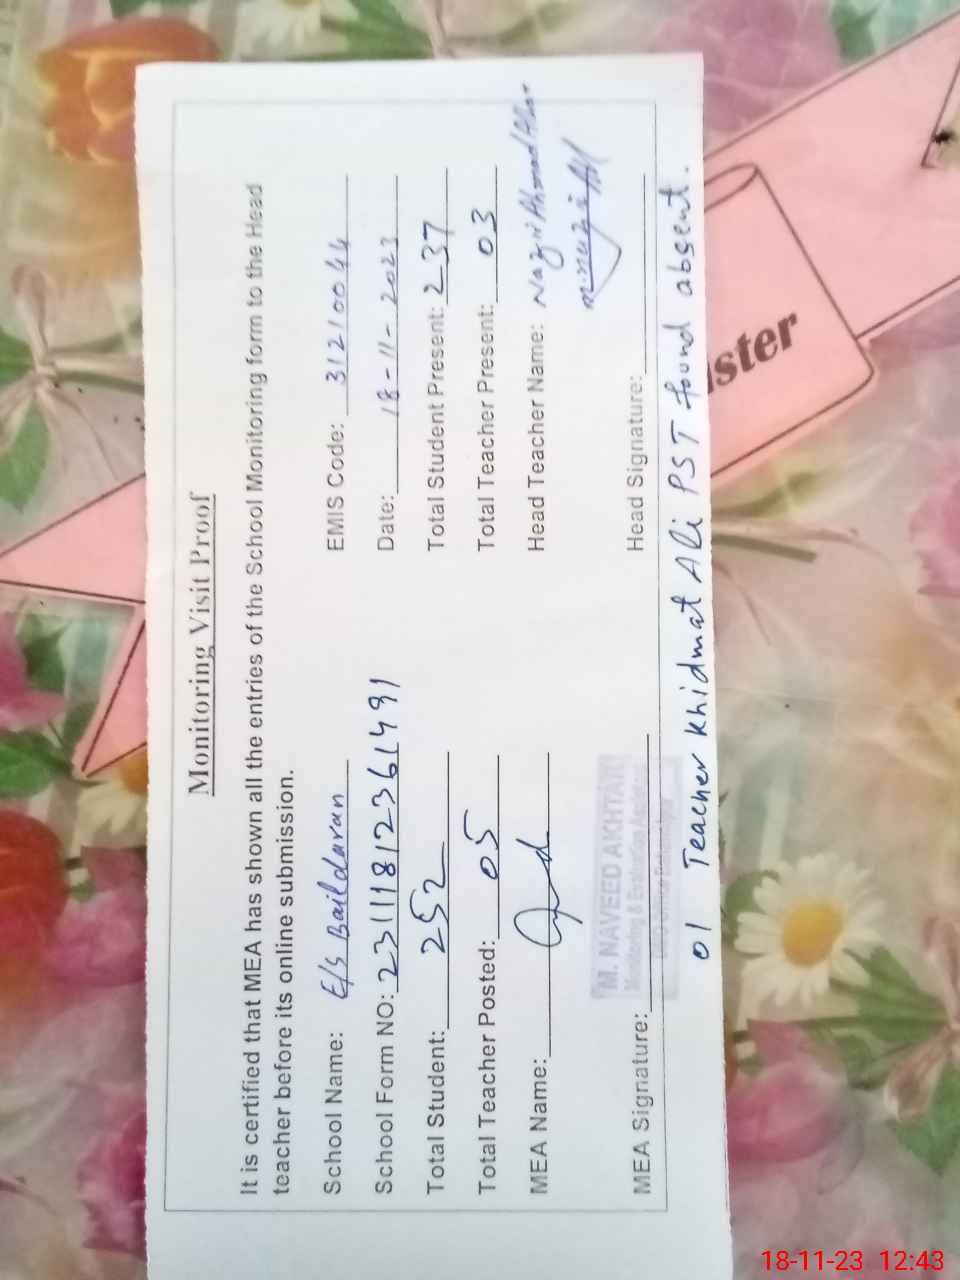 Monitoring Visit Proof
It is certified that MEA has shown all the entries of the School Monitoring form to the Head
teacher before its online submission.
School Name: E/S Baildaran
EMIS Code: 31210044
School Form NO: 231118123614991
Date: 18-11-2023
Total Student: 252
Total Student Present: 237
Total Teacher Posted: 05
Total Teacher Present: 03
MEA Name:
Head Teacher Name: Nazir Ahmad
M. NAVEED AKHTAR
Monitoring & Evaluation Assistant
MEA Signature:
Head Signature:
01 Teacher Khidmat Ali PST found absent.
ister
18-11-23 12:43